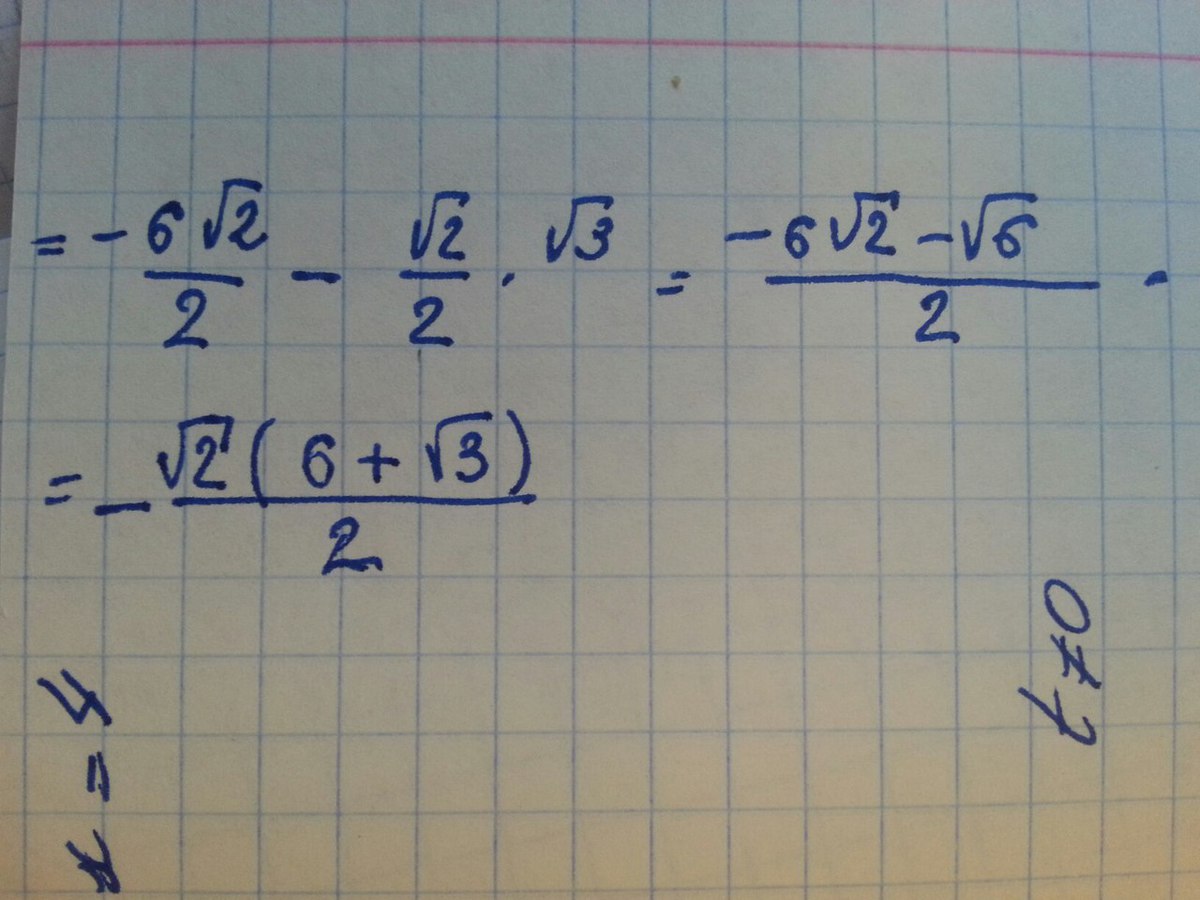 = - 6√2/2 - √2/2 · √3 = (-6√2 - √6)/2 -
= - √2(6 + √3)/2
x = 4